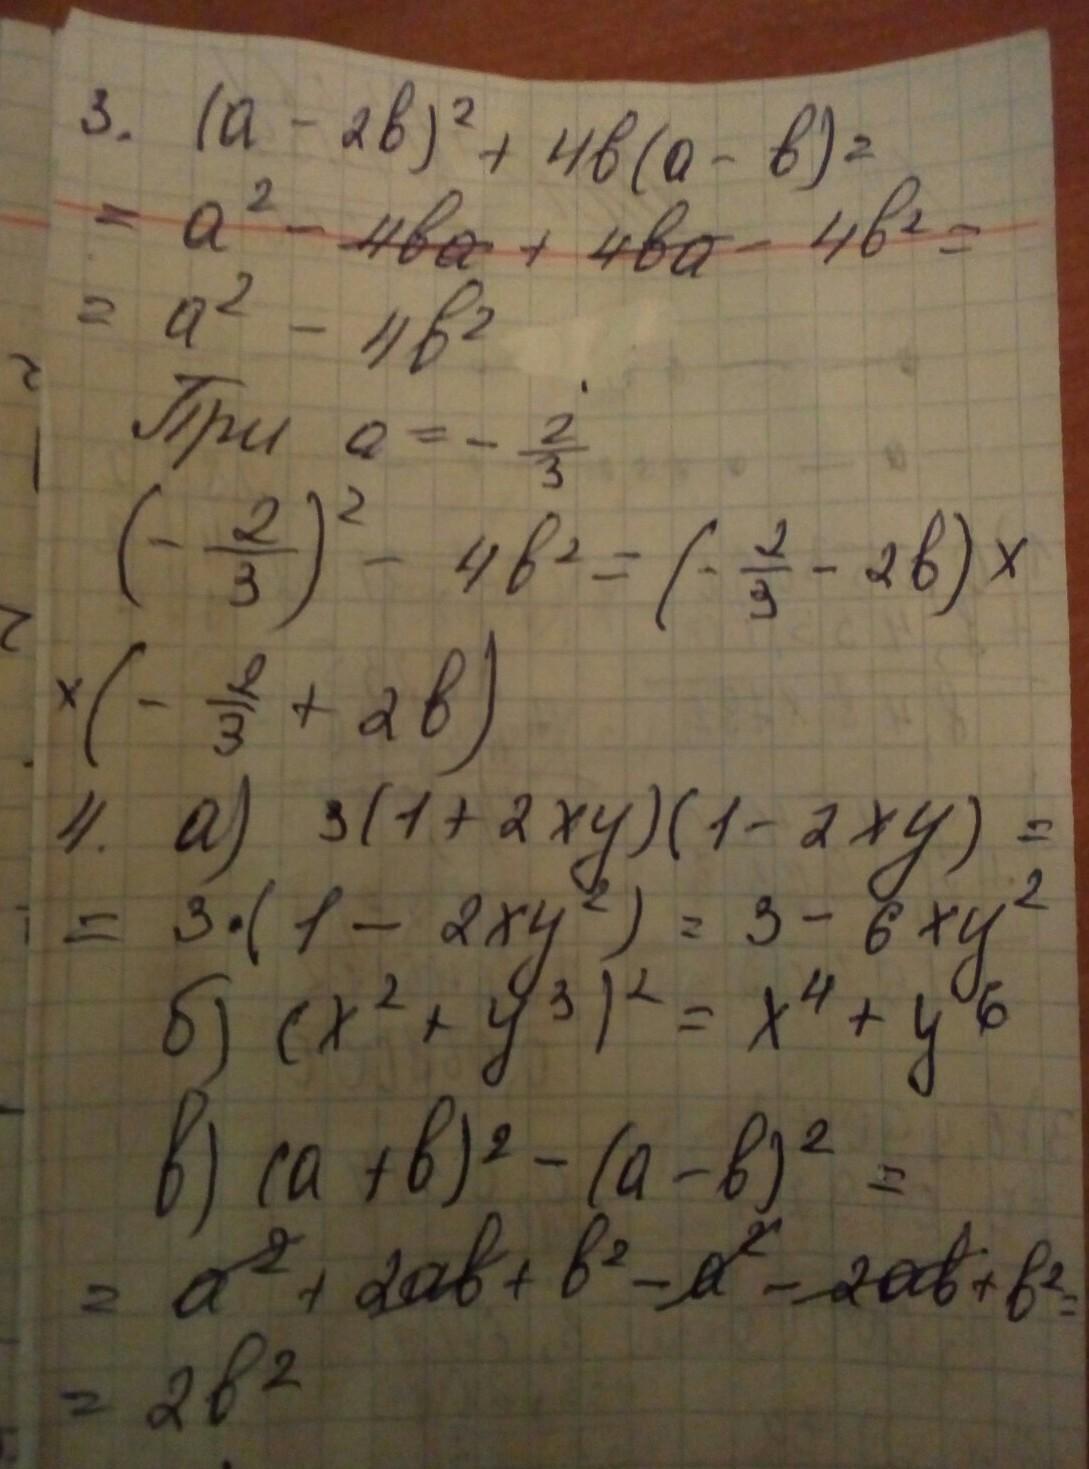 3. (a - 2b)² + 4b(a - b) =
= a² - 4ba + 4ba - 4b² =
= a² - 4b²
При a = - 2/3
(- 2/3)² - 4b² = (- 2/3 - 2b) ×
× (- 2/3 + 2b)
4. а) 3(1 + 2xy)(1 - 2xy) =
= 3·(1 - 2xy²) = 3 - 6xy²
б) (x² + y³)² = x⁴ + y⁶
в) (a + b)² - (a - b)² =
= a² + 2ab + b² - a² - 2ab + b² =
= 2b²